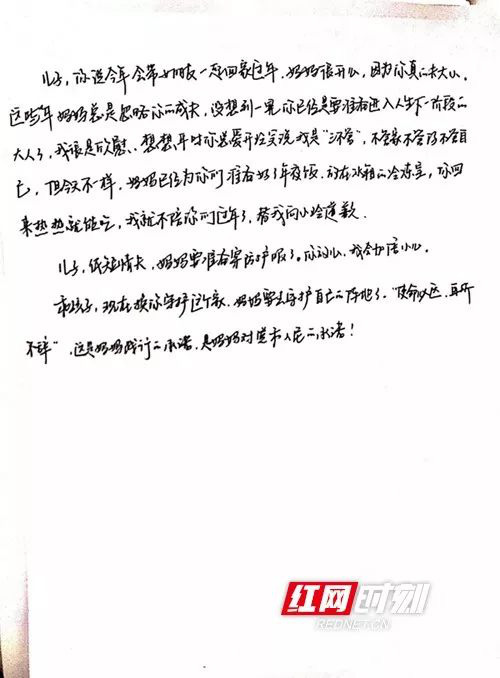 儿子，你说今年会带女朋友一起回家过年，妈妈很开心，因为你真的长大了。
这些年妈妈总是忽略你的成长，没想到一晃你已经是要准备进入人生下一阶段的
大人了，我很是欣慰。想想平时你总爱开玩笑说我是"三不管"，不管家不管你不管自
己，但今天不一样，妈妈已经为你们准备好了年夜饭，就在冰箱的冷冻里，你回
来热热就能吃，我就不陪你们过年了，替我向小冷道歉。
儿子，纸短情长，妈妈要准备穿防护服了。你放心，我会加倍小心。
乖孩子，现在换你守护这个家，妈妈要去守护自己的阵地了。"使命必达，再所
不辞"，这是妈妈践行的承诺，是妈妈对党和人民的承诺！
红网时刻
REDNET.CN